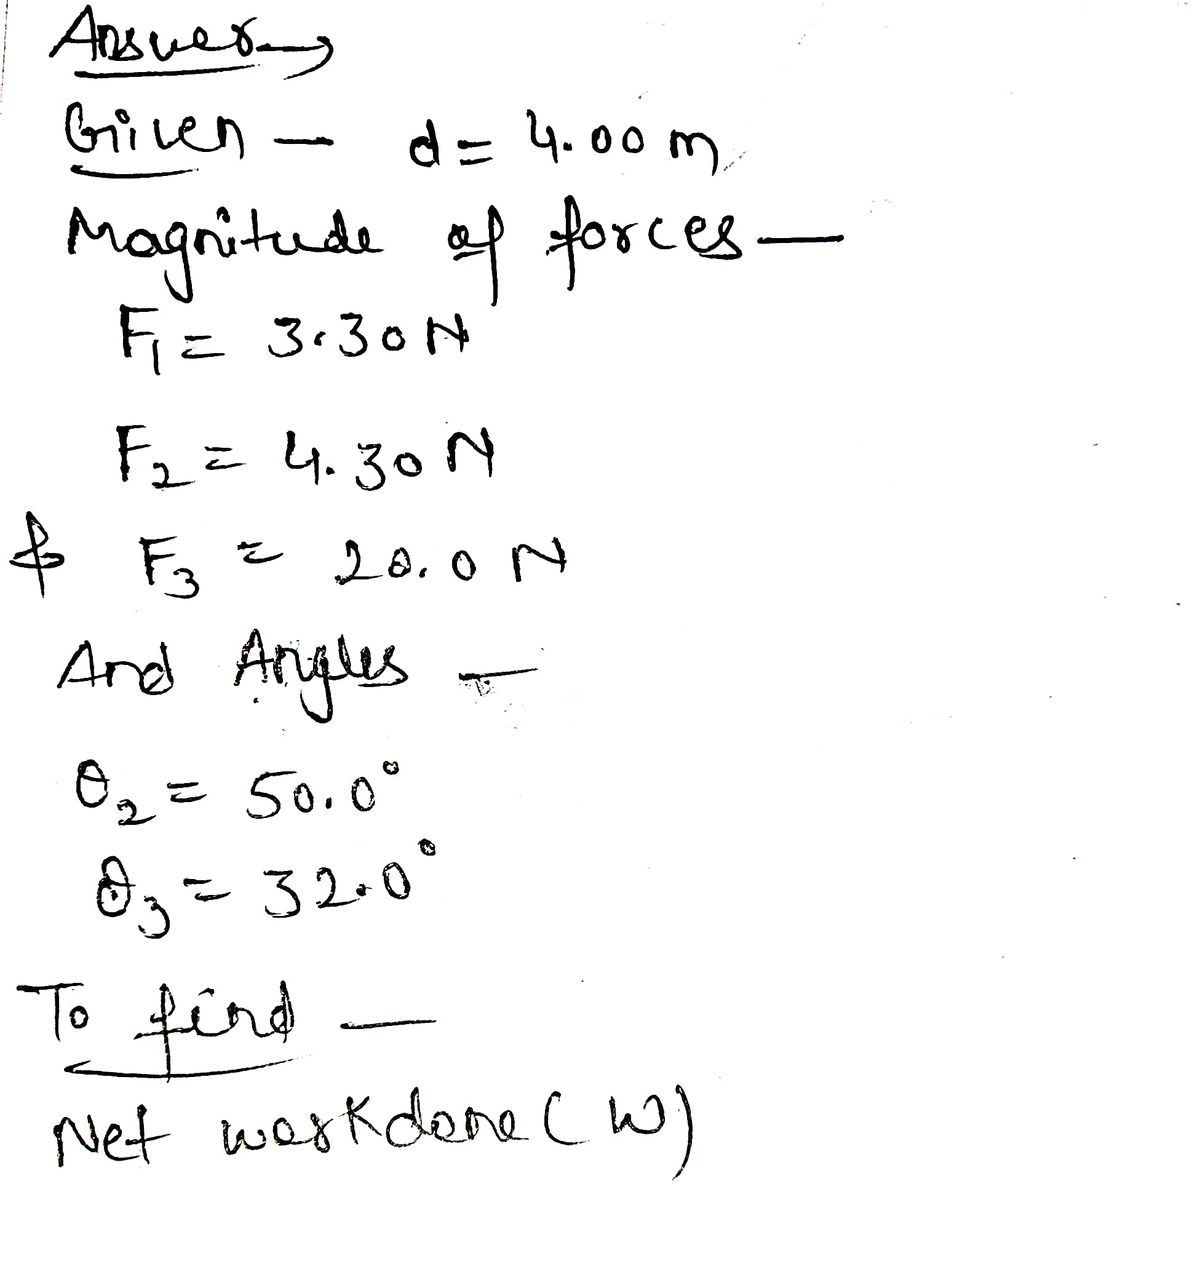 Answer →
Given — d = 4.00 m
Magnitude of forces —
F₁ = 3.30 N
F₂ = 4.30 N
& F₃ = 20.0 N
And Angles —
θ₂ = 50.0°
θ₃ = 32.0°
To find —
Net workdone (W)